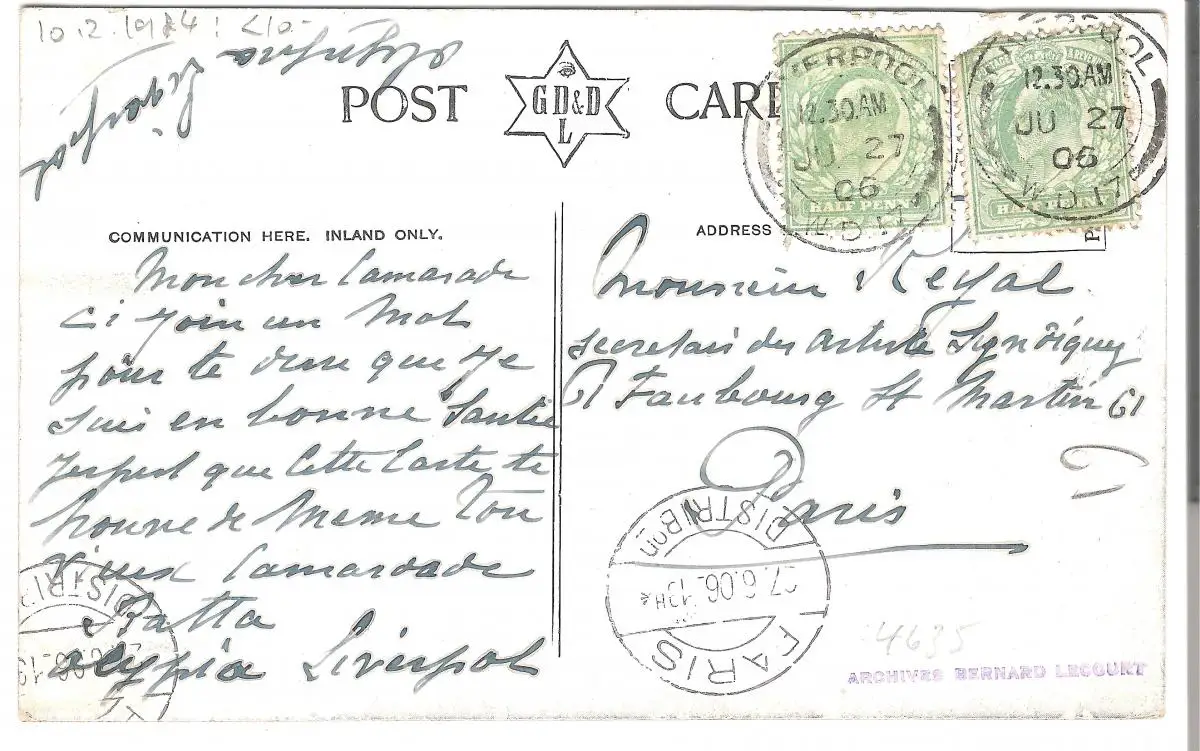 10.2.1984 : £10-
olympia
Liverpool
POST CARD
GD&D
L
LIVERPOOL
12.30.AM
JU 27
06
W.D.17
HALF PENNY
LIVERPOOL
12.30.AM
JU 27
06
W.D.17
HALF PENNY
COMMUNICATION HERE. INLAND ONLY.
Mon cher Camarade
ci join un Mot
pour te dire que je
suis en bonne Santée
jespert que Cette Carte te
trouve de Meme Ton
Vieux Camarade
Batta
olympia Liverpol
ADDRESS
Monsieur Reyal
secretair des artiste Syndiques
Faubourg St Martin 61
Paris
PARIS
DISTRIBon
27.6.06
DISTRIB
4635
ARCHIVES BERNARD LECOURT